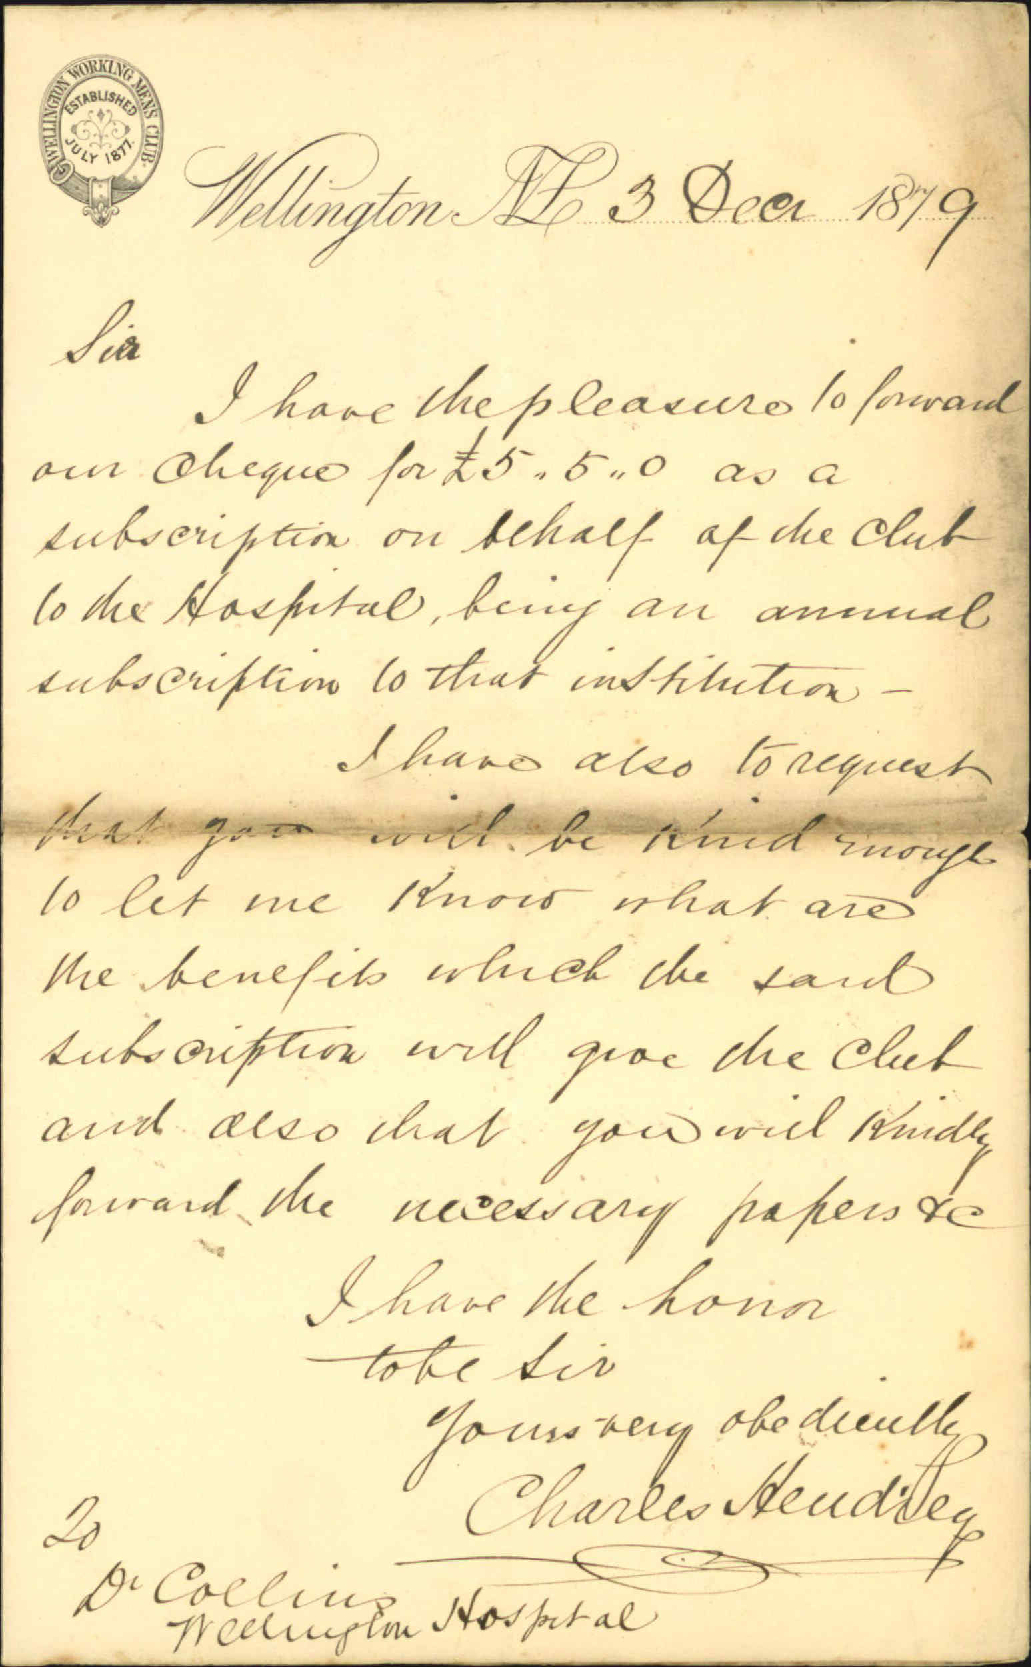 WELLINGTON WORKING MEN'S CLUB.
ESTABLISHED
JULY 1877.
Wellington NZ 3 Decr 1879
Sir
I have the pleasure to forward
our cheque for £5.,5.,0 as a
subscription on behalf of the Club
to the Hospital, being an annual
subscription to that institution –
I have also to request
that you will be kind enough
to let me know what are
the benefits which the said
subscription will give the Club
and also that you will kindly
forward the necessary papers &c
I have the honor
to be Sir
Yours very obediently
Charles
To
Dr Collins
Wellington Hospital